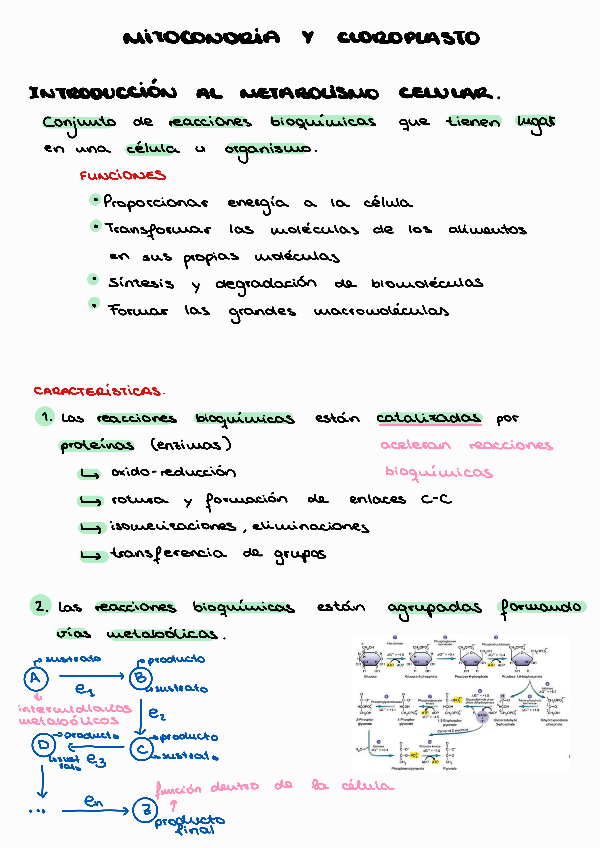 MITOCONDRIA Y CLOROPLASTO
INTRODUCCIÓN AL METABOLISMO CELULAR.
Conjunto de reacciones bioquímicas que tienen lugar
en una célula u organismo.
FUNCIONES
• Proporcionar energía a la célula
• Transformar las moléculas de los alimentos
en sus propias moléculas
• Síntesis y degradación de biomoléculas
• Formar las grandes macromoléculas
CARACTERÍSTICAS.
1. Las reacciones bioquímicas están catalizadas por
proteínas (enzimas) aceleran reacciones
bioquímicas
↳ oxido-reducción
↳ rotura y formación de enlaces C-C
↳ isomerizaciones, eliminaciones
↳ transferencia de grupos
2. Las reacciones bioquímicas están agrupadas formando
vías metabólicas.
sustrato
producto
A
e1
B
sustrato
intermediarios
metabólicos
e2
D
producto
e3
C
producto
sustrato
sustrato
...
en
Z
función dentro de la célula
producto
final
Glucose
Pyruvate